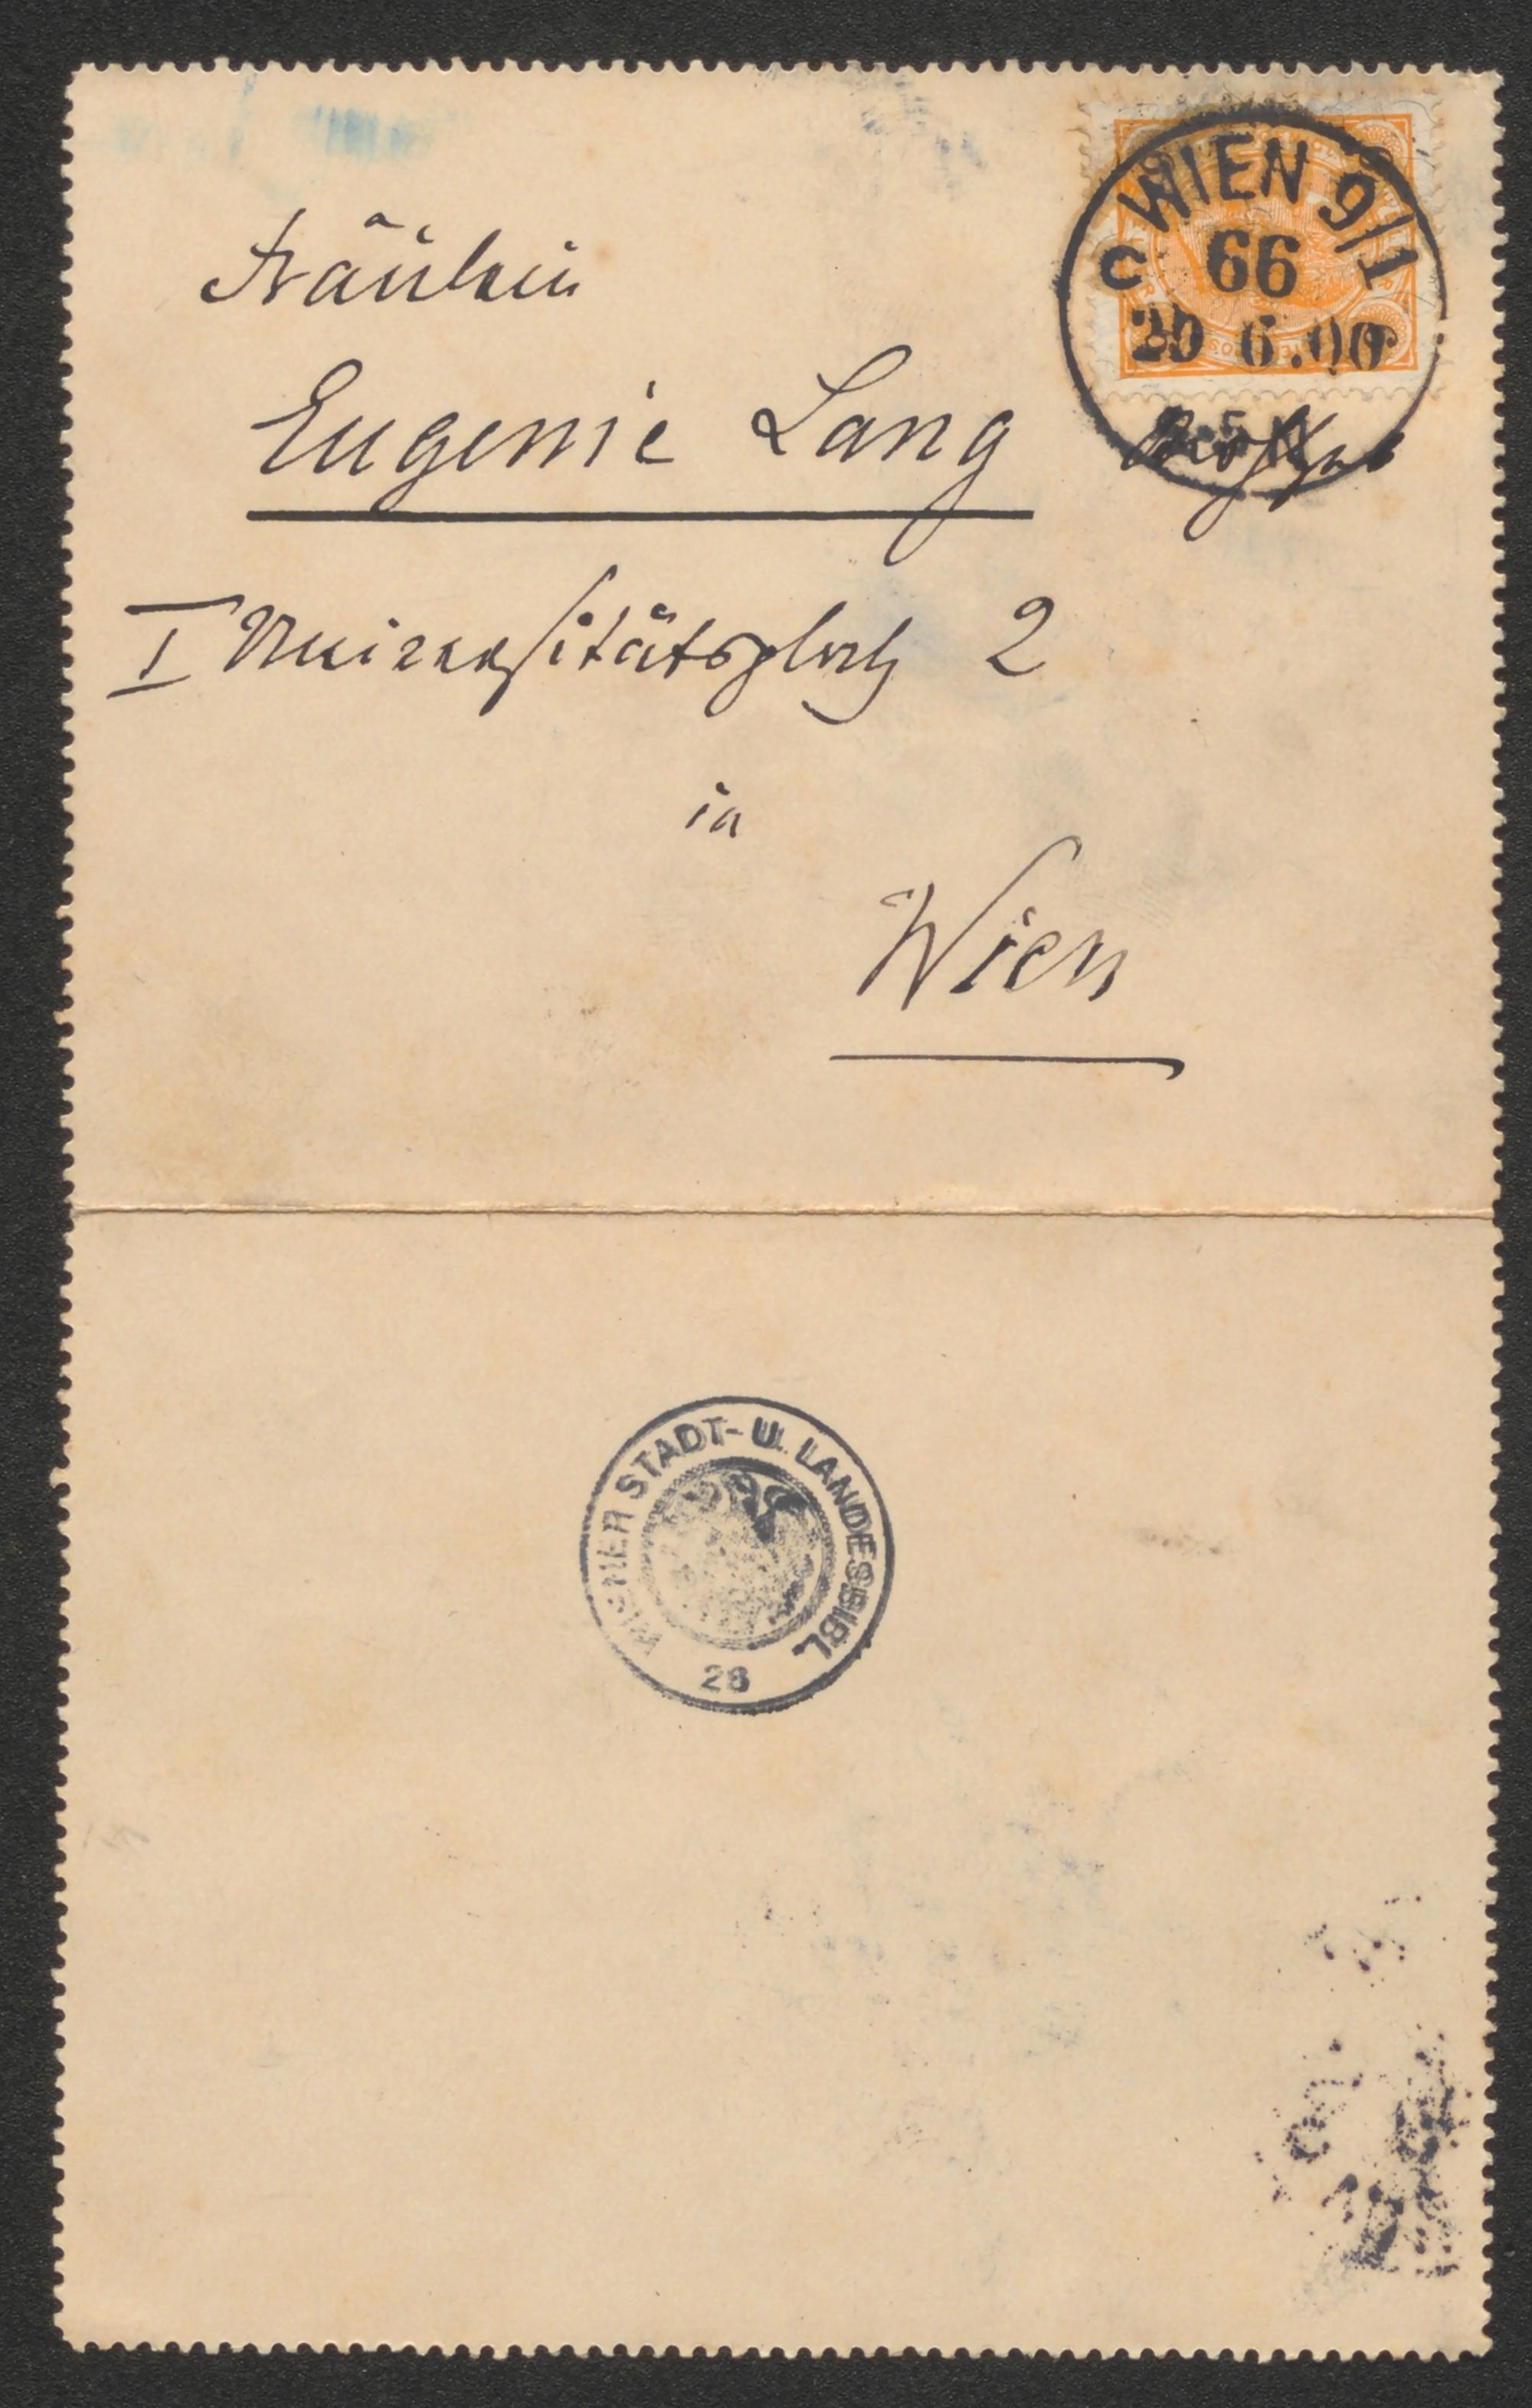 WIEN 9/1
C 66
20 6.00
Fräulein
Eugenie Lang
I Universitätsplatz 2
in
Wien
WIENER STADT- U. LANDESBIBL.
28